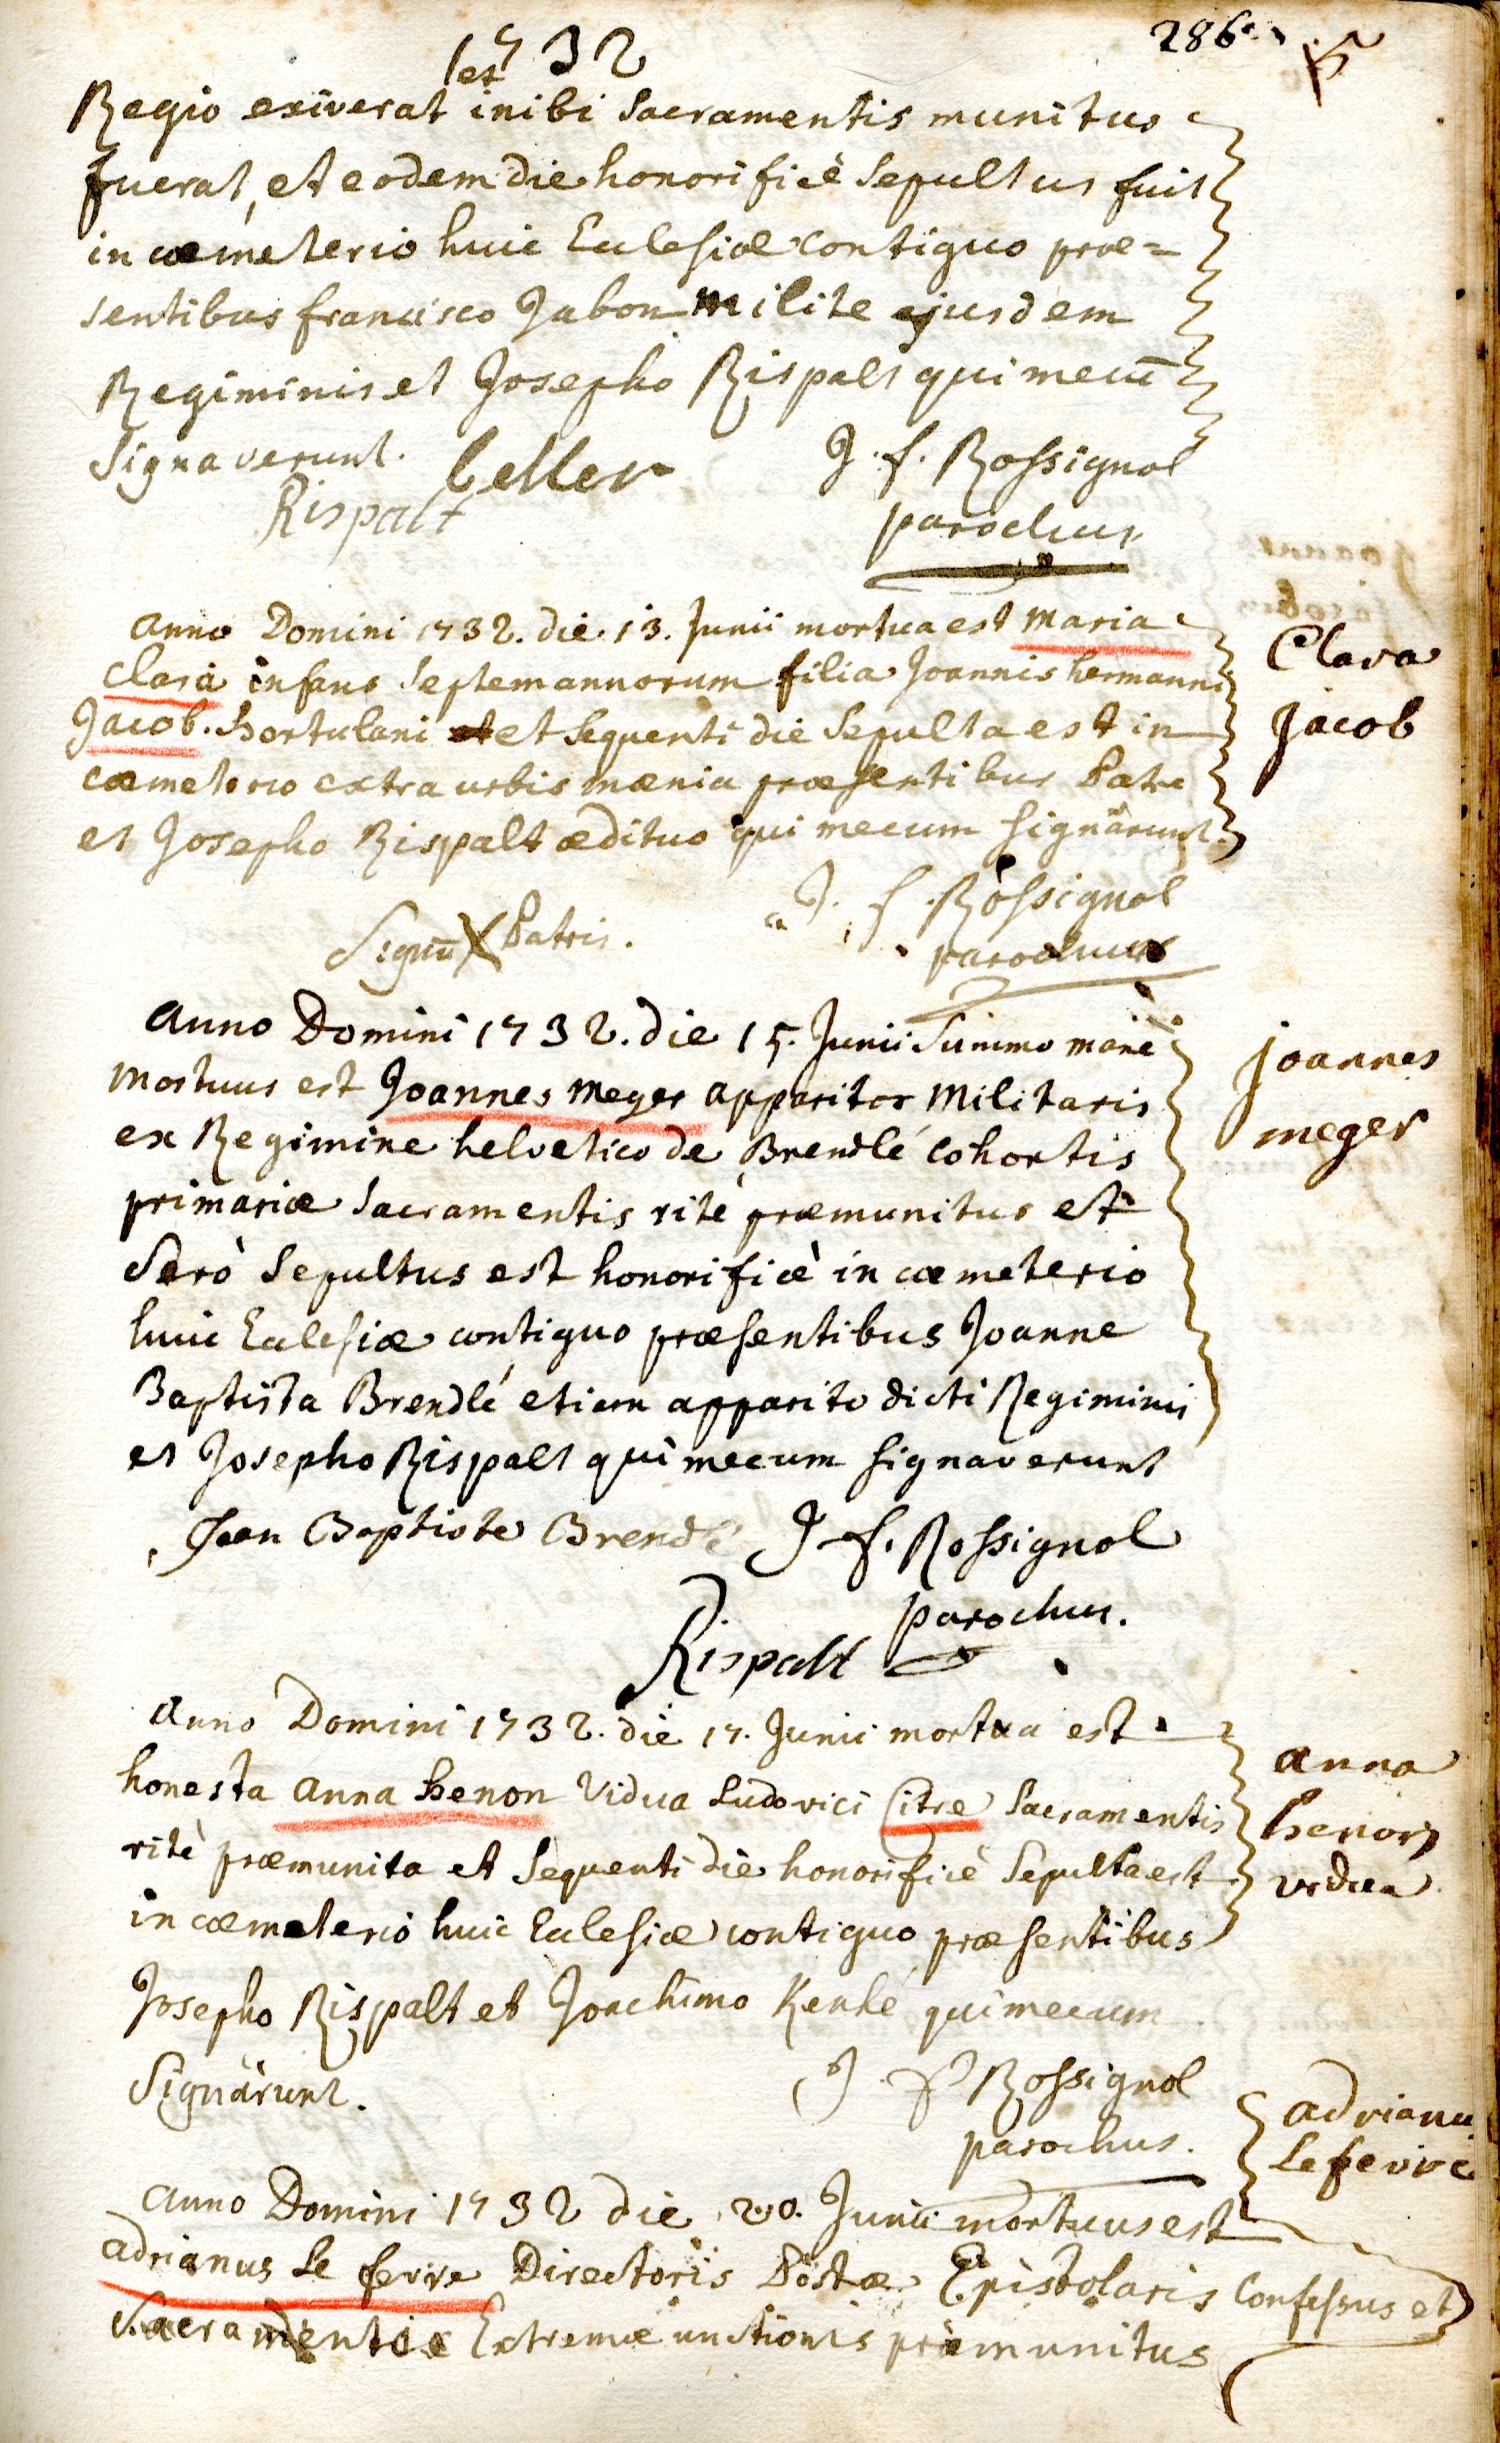 1732
286.
et
Regio exiverat inibi Sacramentis munitus
fuerat, et eodem die honorificè Sepultus fuit
in cœmeterio huic Ecclesiæ contiguo præ=
sentibus francisco Jabon milite ejusdem
Regiminis et Josepho Rispalt qui mecū
Signaverunt.
Celler
J. f. Rossignol
Rispalt
parochus
anno Domini 1732. die 13. Junii mortua est Maria
Clara infans Septem annorum filia Joannis hermanni
Jacob. hortulani et Sequenti die Sepulta est in
cœmeterio extra urbis mœnia præsentibus Patre
et Josepho Rispalt ædituo qui mecum Signârunt.
Clara
Jacob
J. f. Rossignol
Signū X Patris.
parochus
anno Domini 1732. die 15. Junii Summo mane
mortuus est Joannes Meger apparitor Militaris
ex Regimine helvetico de Brendlé Cohortis
primariæ Sacramentis ritè præmunitus et
Serò Sepultus est honorificè in cœmeterio
huic Ecclesiæ contiguo præsentibus Joanne
Baptista Brendlé etiam apparito dicti Regiminis
et Josepho Rispalt qui mecum Signaverunt
joannes
meger
Jean Baptiste Brendlé
J. f. Rossignol
parochus.
Rispalt
anno Domini 1732. die 17. Junii mortua est
honesta anna henon Vidua Ludovici Citre Sacramentis
ritè præmunita et Sequenti die honorificè Sepulta est
in cœmeterio huic Ecclesiæ contiguo præsentibus
Josepho Rispalt et Joachimo Kenlé qui mecum
Signârunt.
anna
henon
vidua
J f Rossignol
parochus.
anno Domini 1732 die 20. Junii mortuus est
adrianus Le fevre Directoris Postæ Epistolaris Confessus et
Sacramentis Extremæ unctionis præmunitus
adrianu
Lefevre